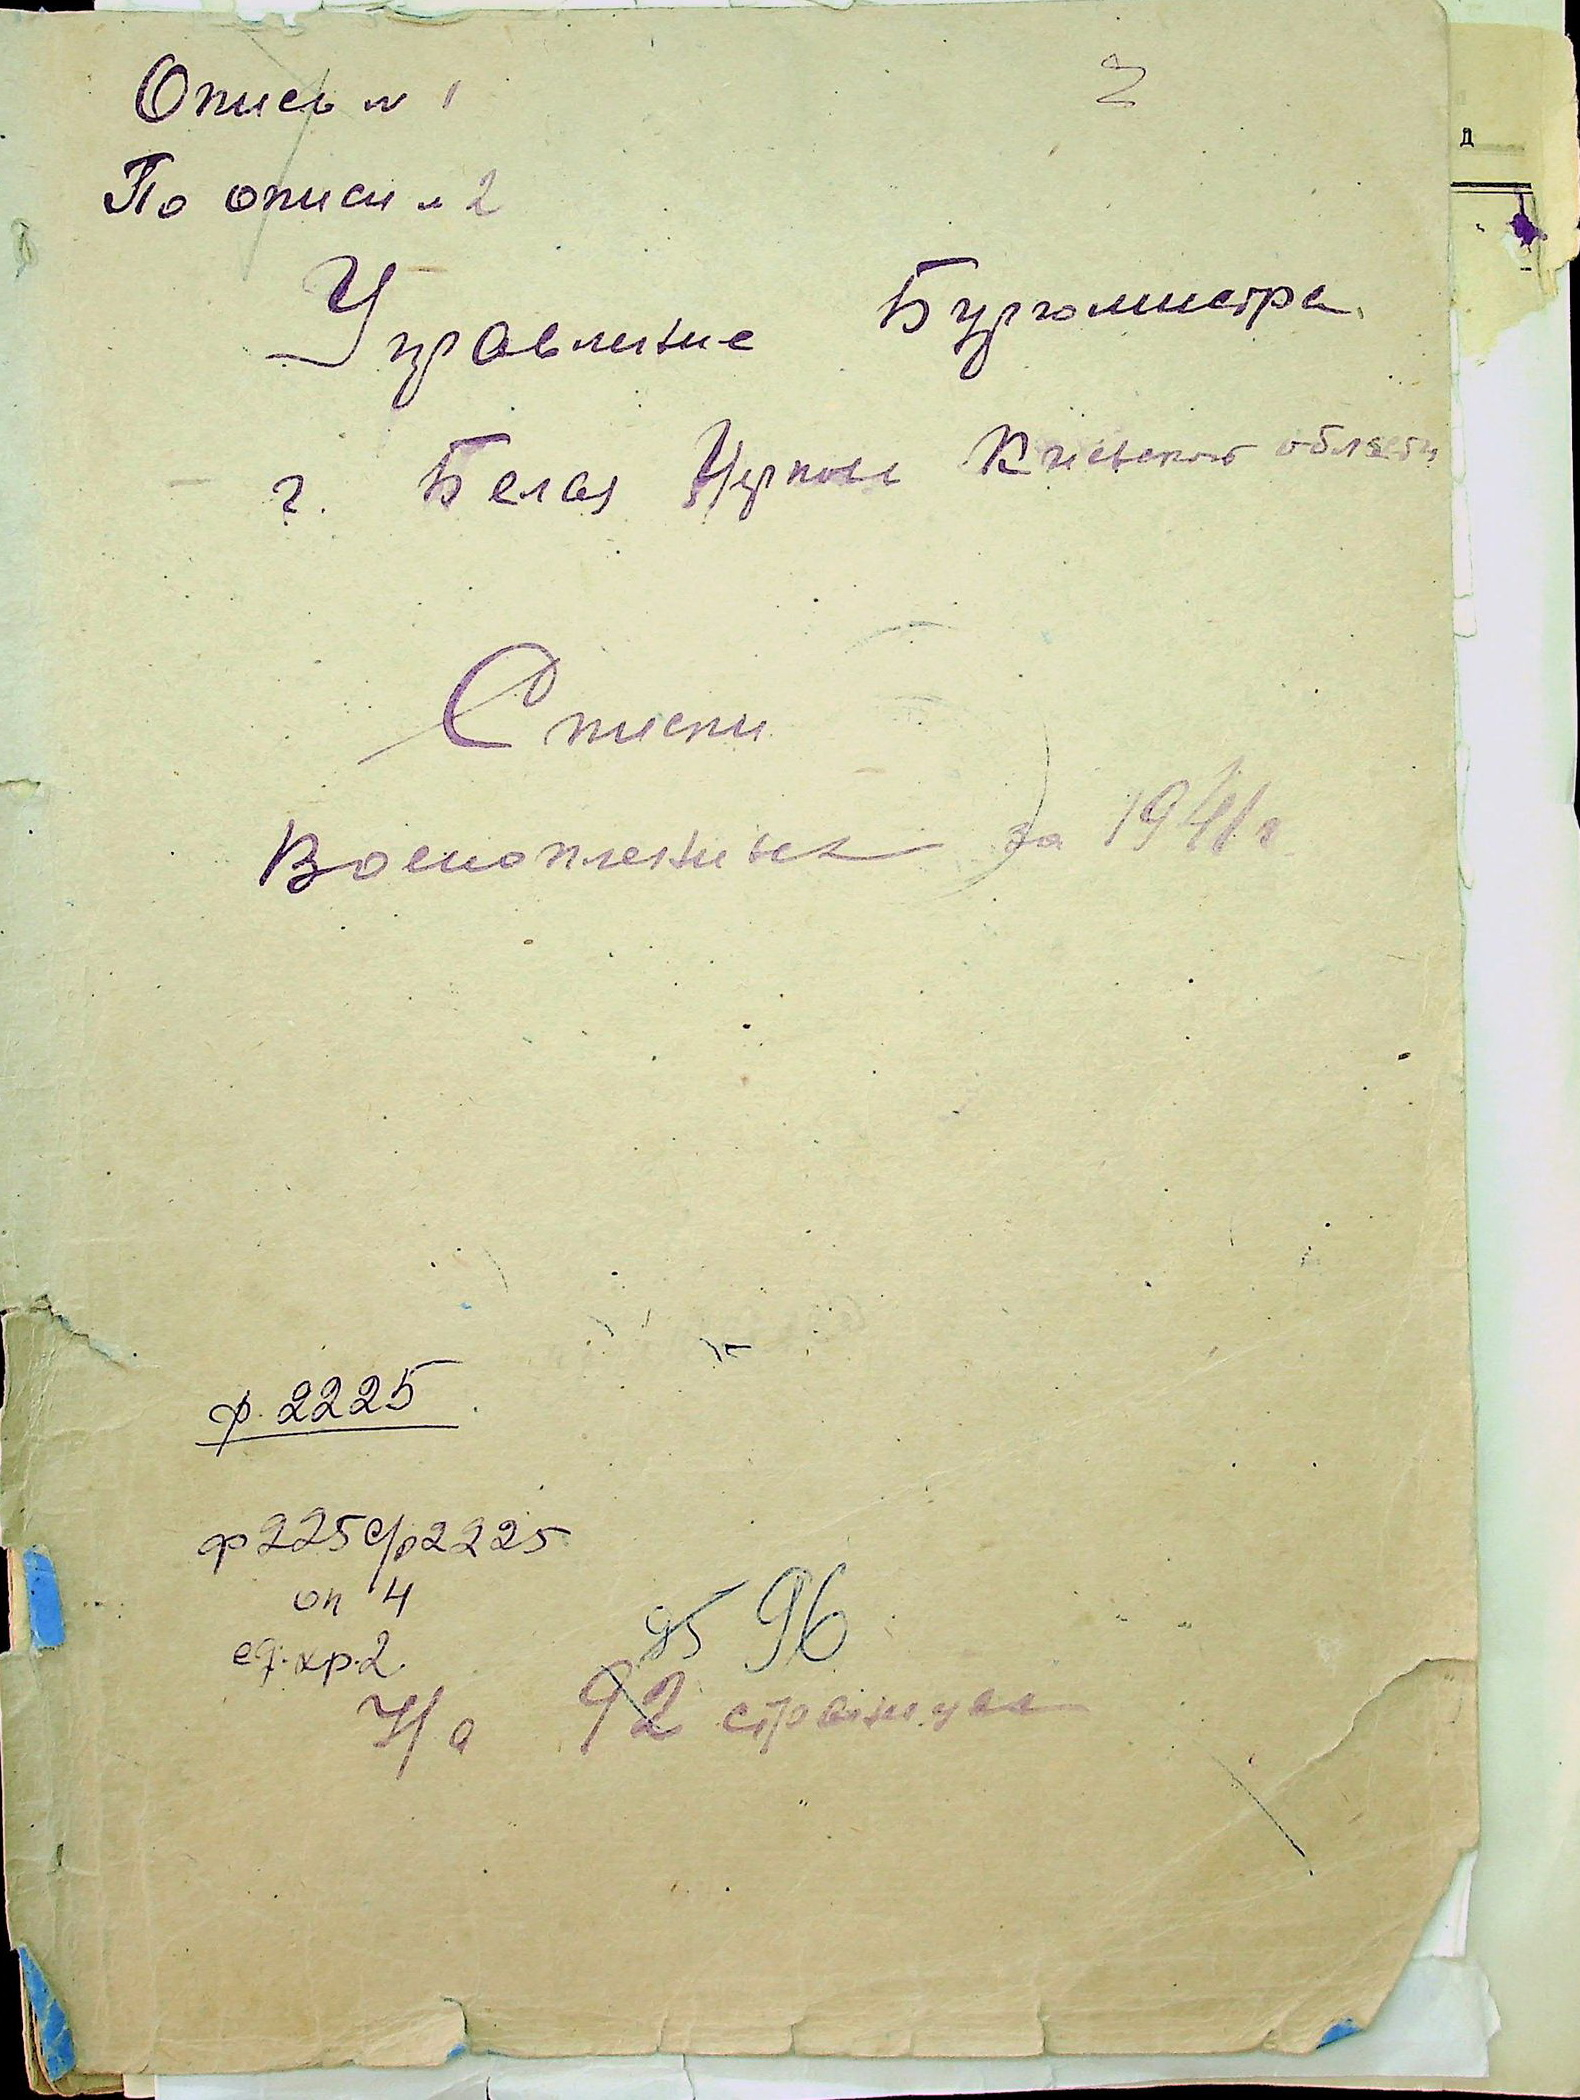 Опись № 1
По описи № 2
Управление Бургомистра
г. Белая Церковь Киевской области
Списки
Военопленных за 1941 г
ф. 2225
ф 225 с/р 2225
оп 4
ед. хр. 2.
95 96
На 92 страницах